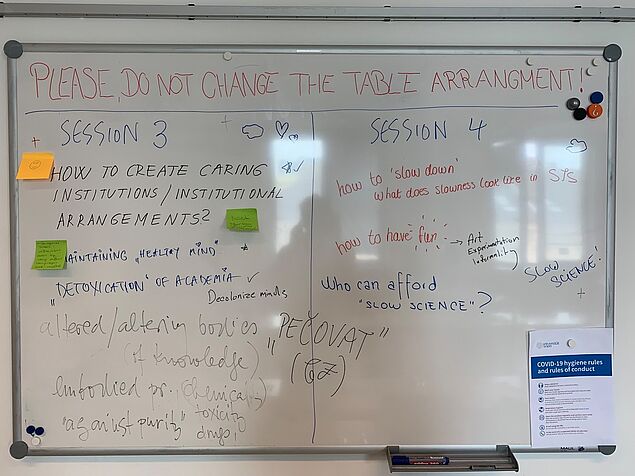 PLEASE, DO NOT CHANGE THE TABLE ARRANGMENT!
SESSION 3
HOW TO CREATE CARING
INSTITUTIONS / INSTITUTIONAL
ARRANGEMENTS?
MAINTAINING „HEALTHY MIND"
„DETOXICATION" OF ACADEMIA ✓
Decolonize minds
altered/altering bodies
(of knowledge)
embodied chemicals
"against purity" toxicity
drugs
„PEČOVAT"
(CZ)
SESSION 4
how to 'slow down'
what does slowness look like in STS
how to have fun → Art
Experimentation
Informality
SLOW
SCIENCE!
Who can afford
"SLOW SCIENCE"?
COVID-19 hygiene rules
and rules of conduct
MAUL